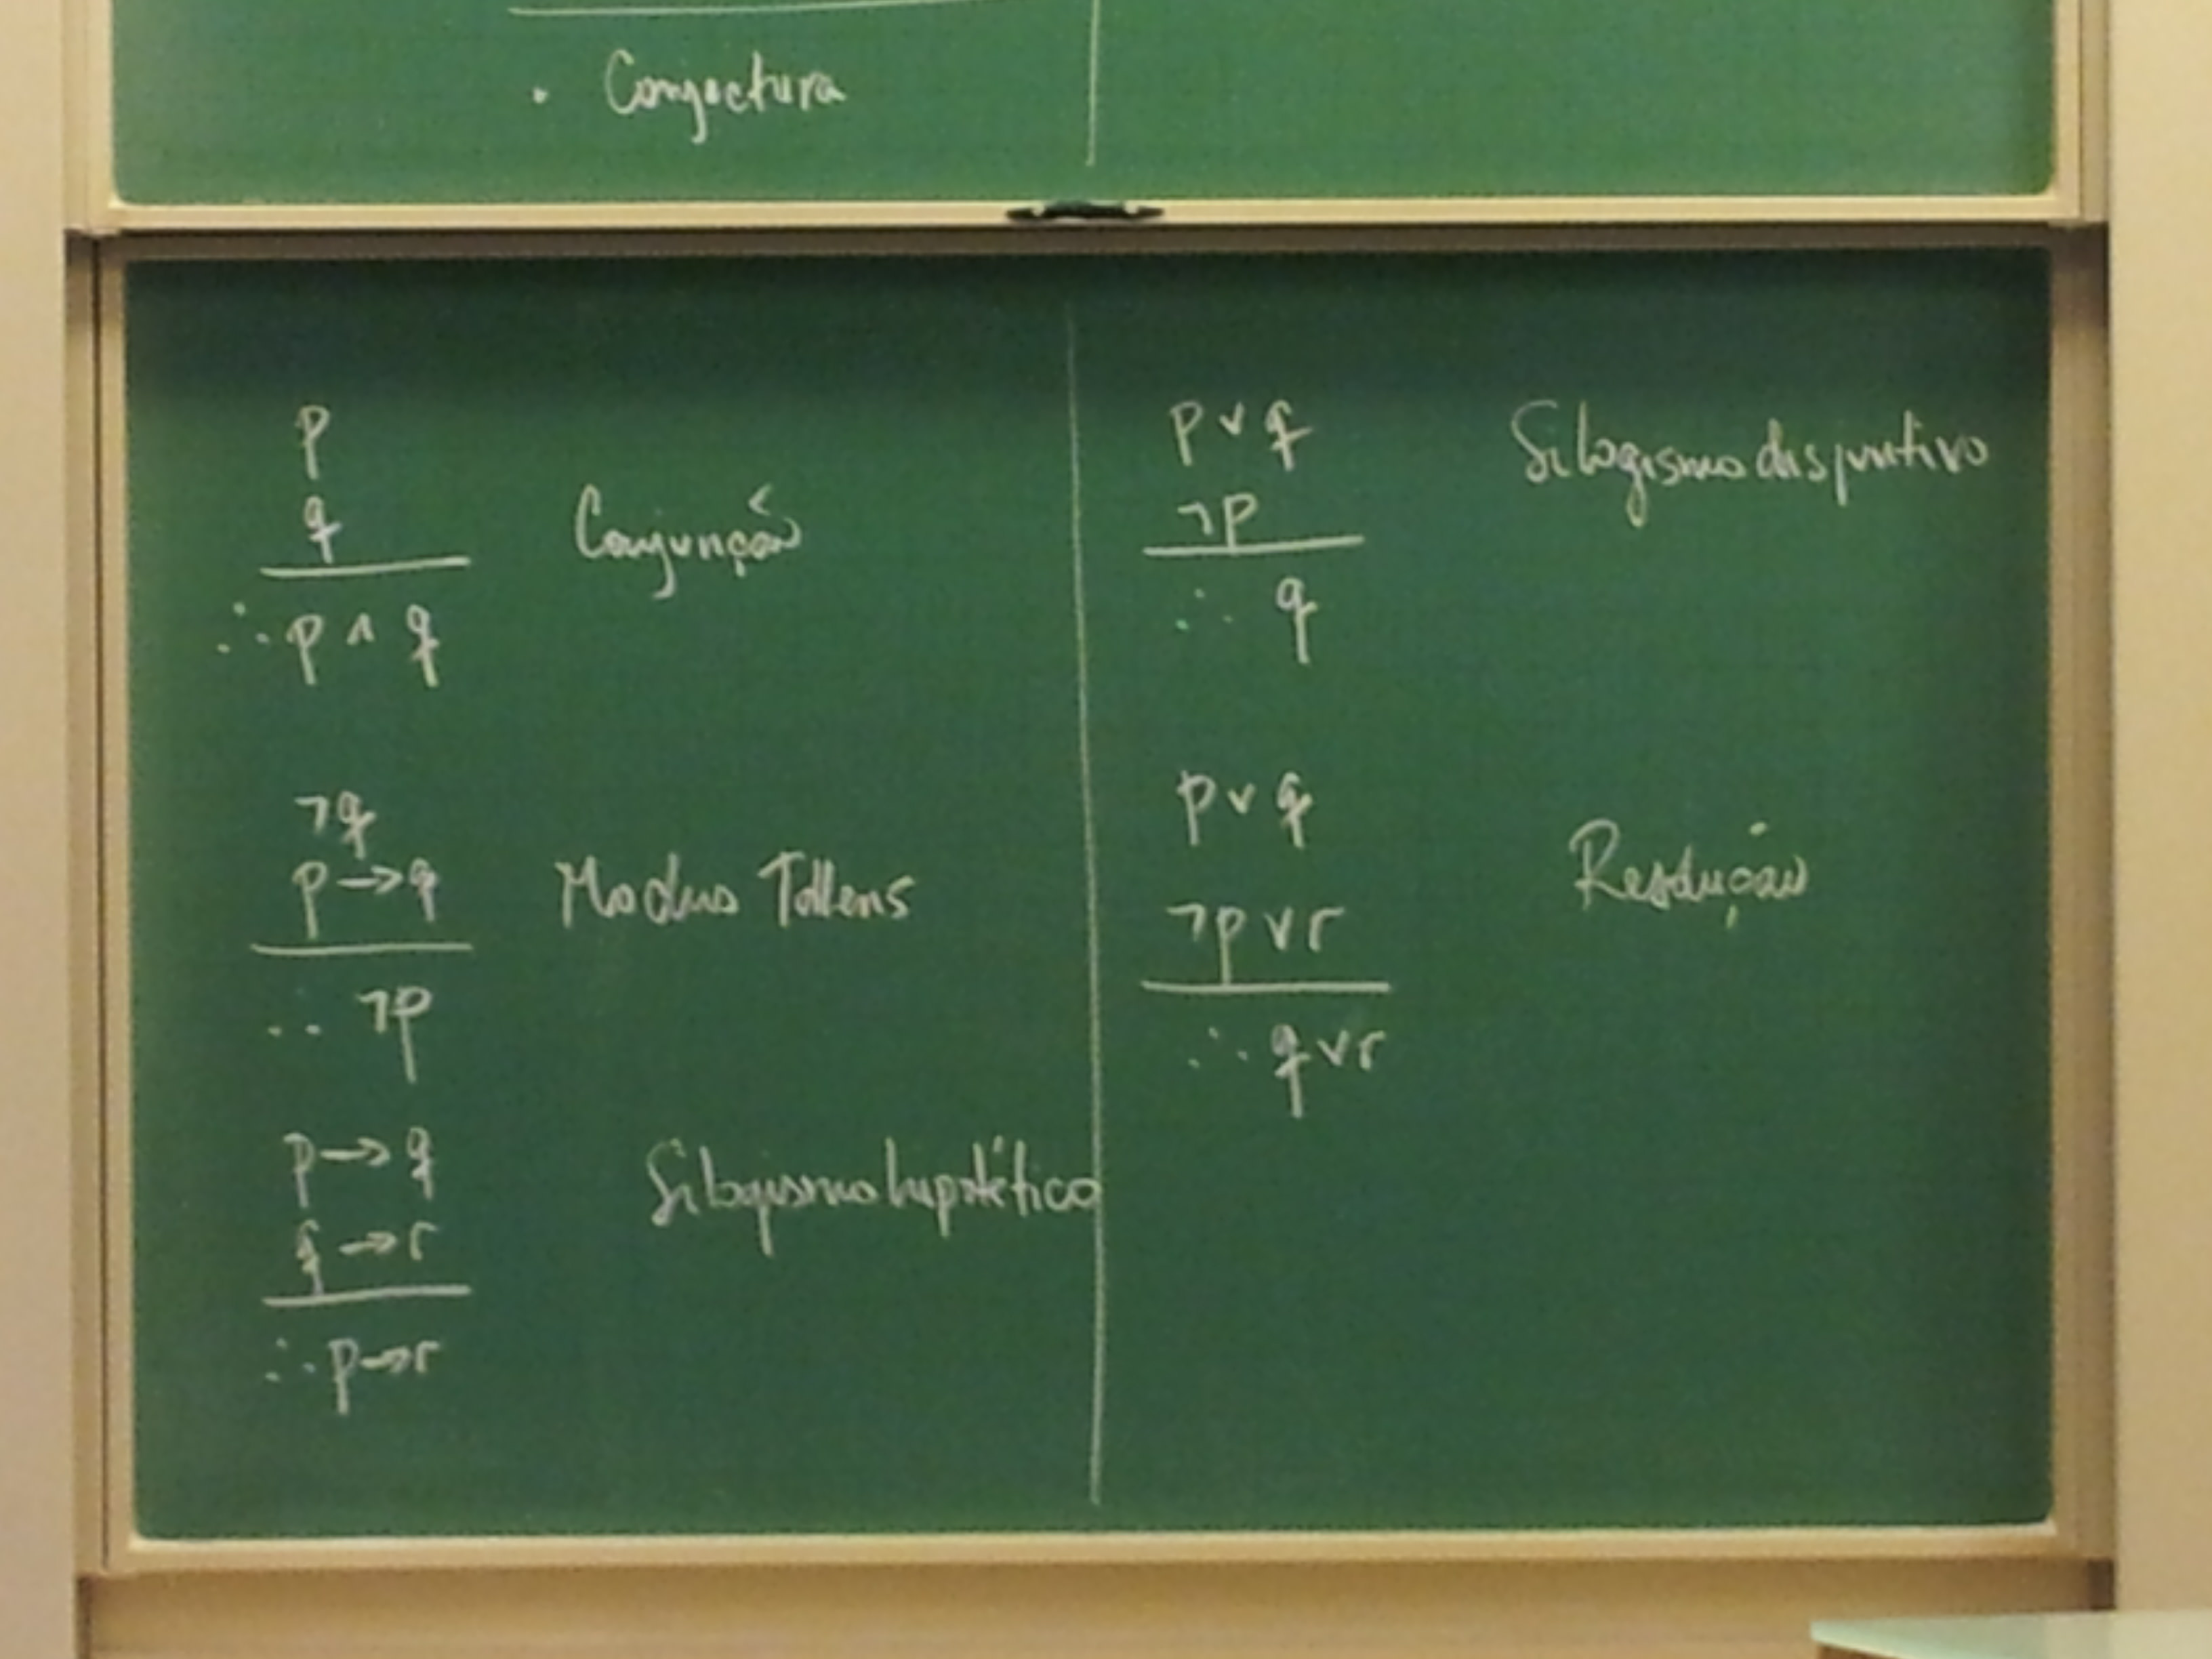 · Conjectura
p
q
∴ p ∧ q
Conjunção
¬q
p → q
∴ ¬p
Modus Tollens
p → q
q → r
∴ p → r
Silogismo hipotético
p ∨ q
¬p
∴ q
Silogismo disjuntivo
p ∨ q
¬p ∨ r
∴ q ∨ r
Resolução